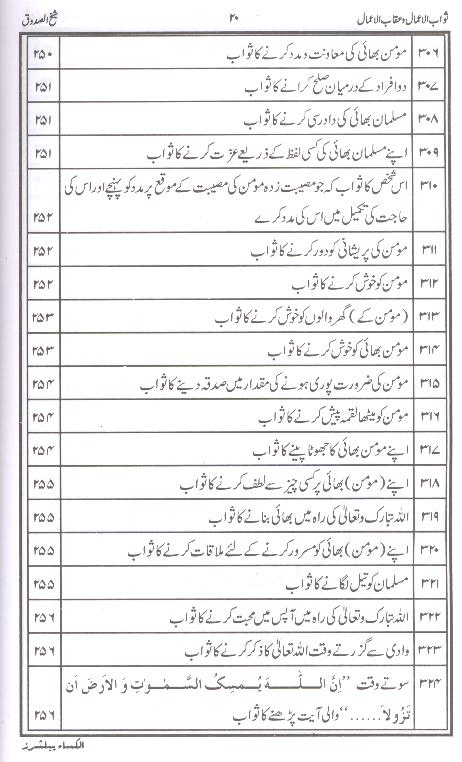 ثواب الاعمال و عقاب الاعمال ۲۰ شیخ الصدوقؒ
۳۰۶ مومن بھائی کی معاونت و مدد کرنے کا ثواب ۲۵۰
۳۰۷ دو افراد کے درمیان صلح کرانے کا ثواب ۲۵۱
۳۰۸ مسلمان بھائی کی داد رسی کرنے کا ثواب ۲۵۱
۳۰۹ اپنے مسلمان بھائی کی کسی لفظ کے ذریعے عزت کرنے کا ثواب ۲۵۱
۳۱۰ اس شخص کا ثواب کہ جو مصیبت زدہ مومن کی مصیبت کے موقع پر مدد کو پہنچے اور اس کی
حاجت کی تکمیل میں اس کی مدد کرے ۲۵۲
۳۱۱ مومن کی پریشانی کو دور کرنے کا ثواب ۲۵۲
۳۱۲ مومن کو خوش کرنے کا ثواب ۲۵۲
۳۱۳ (مومن کے) گھر والوں کو خوش کرنے کا ثواب ۲۵۳
۳۱۴ مومن بھائی کو خوش کرنے کا ثواب ۲۵۳
۳۱۵ مومن کی ضرورت پوری ہونے کی مقدار میں صدقہ دینے کا ثواب ۲۵۴
۳۱۶ مومن کو میٹھا لقمہ پیش کرنے کا ثواب ۲۵۴
۳۱۷ اپنے مومن بھائی کا جھوٹا پینے کا ثواب ۲۵۴
۳۱۸ اپنے (مومن) بھائی پر کسی چیز سے لطف کرنے کا ثواب ۲۵۵
۳۱۹ اللہ تبارک و تعالیٰ کی راہ میں بھائی بنانے کا ثواب ۲۵۵
۳۲۰ اپنے (مومن) بھائی کو مسرور کرنے کے لئے ملاقات کرنے کا ثواب ۲۵۵
۳۲۱ مسلمان کو تیل لگانے کا ثواب ۲۵۵
۳۲۲ اللہ تبارک و تعالیٰ کی راہ میں آپس میں محبت کرنے کا ثواب ۲۵۶
۳۲۳ وادی سے گزرتے وقت اللہ تعالیٰ کا ذکر کرنے کا ثواب ۲۵۶
۳۲۴ سوتے وقت ”اِنَّ اللّٰـہَ یُـمسِکُ السَّـمٰوٰتِ وَ الاَرضَ اَن
تَزُولاَ......“ والی آیت پڑھنے کا ثواب ۲۵۶
الکساء پبلشرز